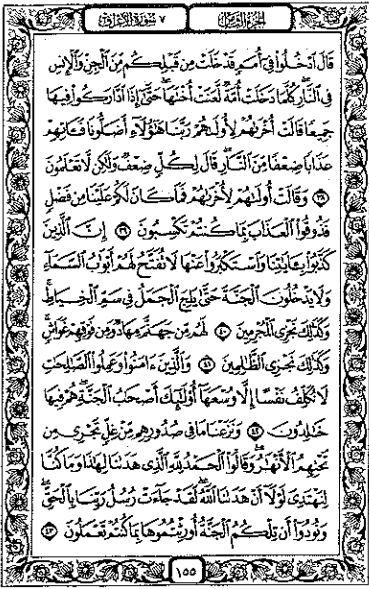 الجزء الثامن
٧ سورة الأعراف
قَالَ ٱدۡخُلُواْ فِيٓ أُمَمٖ قَدۡ خَلَتۡ مِن قَبۡلِكُم مِّنَ ٱلۡجِنِّ وَٱلۡإِنسِ
فِي ٱلنَّارِۖ كُلَّمَا دَخَلَتۡ أُمَّةٞ لَّعَنَتۡ أُخۡتَهَاۖ حَتَّىٰٓ إِذَا ٱدَّارَكُواْ فِيهَا
جَمِيعٗا قَالَتۡ أُخۡرَىٰهُمۡ لِأُولَىٰهُمۡ رَبَّنَا هَٰٓؤُلَآءِ أَضَلُّونَا فَـَٔاتِهِمۡ
عَذَابٗا ضِعۡفٗا مِّنَ ٱلنَّارِۖ قَالَ لِكُلّٖ ضِعۡفٞ وَلَٰكِن لَّا تَعۡلَمُونَ
٣٨ وَقَالَتۡ أُولَىٰهُمۡ لِأُخۡرَىٰهُمۡ فَمَا كَانَ لَكُمۡ عَلَيۡنَا مِن فَضۡلٖ
فَذُوقُواْ ٱلۡعَذَابَ بِمَا كُنتُمۡ تَكۡسِبُونَ ٣٩ إِنَّ ٱلَّذِينَ
كَذَّبُواْ بِـَٔايَٰتِنَا وَٱسۡتَكۡبَرُواْ عَنۡهَا لَا تُفَتَّحُ لَهُمۡ أَبۡوَٰبُ ٱلسَّمَآءِ
وَلَا يَدۡخُلُونَ ٱلۡجَنَّةَ حَتَّىٰ يَلِجَ ٱلۡجَمَلُ فِي سَمِّ ٱلۡخِيَاطِۚ
وَكَذَٰلِكَ نَجۡزِي ٱلۡمُجۡرِمِينَ ٤٠ لَهُم مِّن جَهَنَّمَ مِهَادٞ وَمِن فَوۡقِهِمۡ غَوَاشٖۚ
وَكَذَٰلِكَ نَجۡزِي ٱلظَّٰلِمِينَ ٤١ وَٱلَّذِينَ ءَامَنُواْ وَعَمِلُواْ ٱلصَّٰلِحَٰتِ
لَا نُكَلِّفُ نَفۡسًا إِلَّا وُسۡعَهَآ أُوْلَٰٓئِكَ أَصۡحَٰبُ ٱلۡجَنَّةِۖ هُمۡ فِيهَا
خَٰلِدُونَ ٤٢ وَنَزَعۡنَا مَا فِي صُدُورِهِم مِّنۡ غِلّٖ تَجۡرِي مِن
تَحۡتِهِمُ ٱلۡأَنۡهَٰرُۖ وَقَالُواْ ٱلۡحَمۡدُ لِلَّهِ ٱلَّذِي هَدَىٰنَا لِهَٰذَا وَمَا كُنَّا
لِنَهۡتَدِيَ لَوۡلَآ أَنۡ هَدَىٰنَا ٱللَّهُۖ لَقَدۡ جَآءَتۡ رُسُلُ رَبِّنَا بِٱلۡحَقِّۖ
وَنُودُوٓاْ أَن تِلۡكُمُ ٱلۡجَنَّةُ أُورِثۡتُمُوهَا بِمَا كُنتُمۡ تَعۡمَلُونَ ٤٣
١٥٥